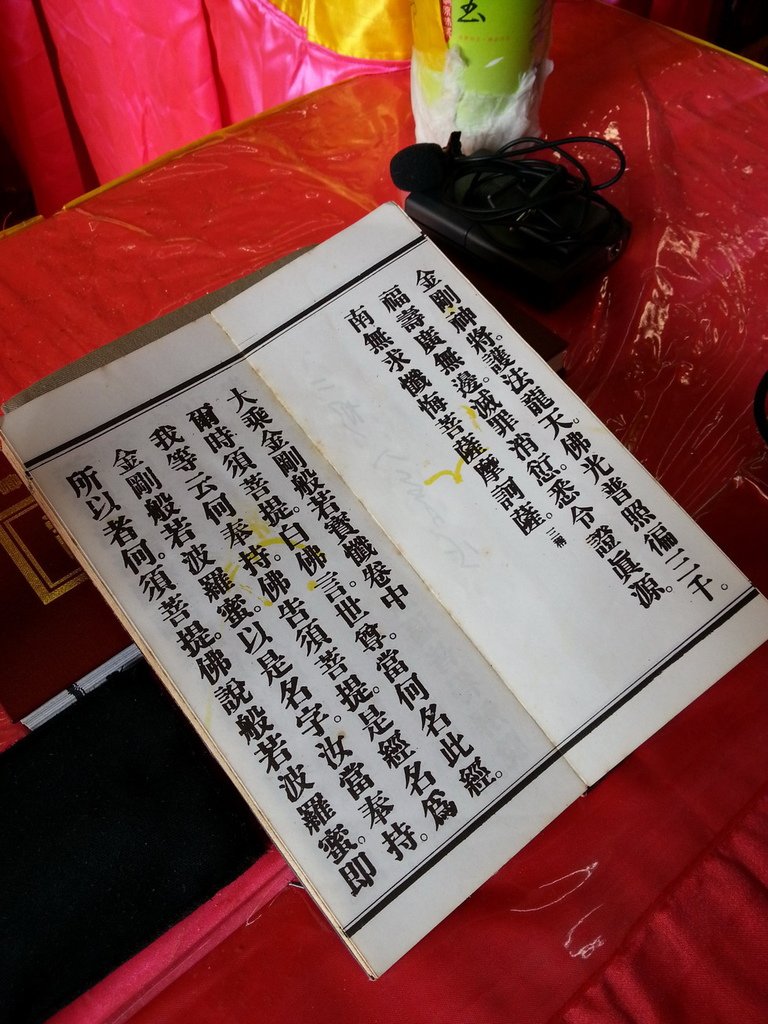 金剛神將。護法龍天。佛光普照徧三千。
福壽廣無邊。滅罪消愆。悉令證眞源。
南無求懺悔菩薩摩訶薩。三稱
大乘金剛般若寶懺卷中
爾時須菩提。白佛言。世尊。當何名此經。
我等云何奉持。佛告須菩提。是經名為
金剛般若波羅蜜。以是名字。汝當奉持。
所以者何。須菩提。佛說般若波羅蜜。即